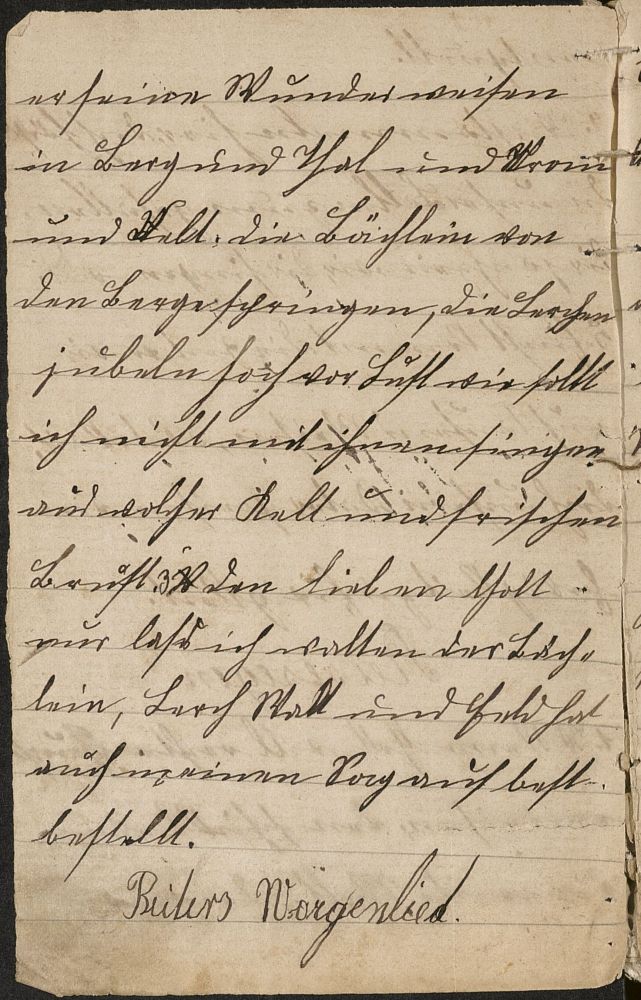 er seine Wunder weisen
in Berg und Thal und Strom
und Felt. die Bächlein von
den Berge springen, die Lerchen
jubeln hoch vor Lust wie sollt
ich nicht mit ihnen singen
aus volher Kelt und frischen
Brust. 3 den lieben Gott
nur lass ich walten der Bäch-
lein, Lerch Walt und Feld hat
auch meinen Sag auf best
bestellt.
Reiters Morgenlied.